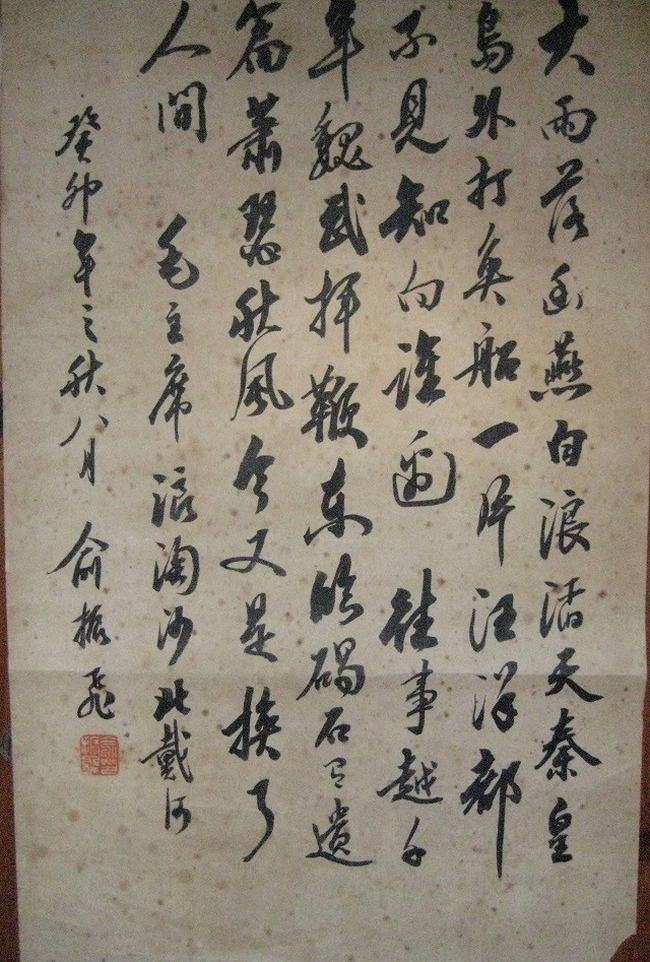 大雨落幽燕白浪滔天秦皇
島外打魚船一片汪洋都
不見知向誰邊 往事越千
年魏武揮鞭東臨碣石有遺
篇蕭瑟秋風今又是換了
人間 毛主席 浪淘沙北戴河
癸卯年之秋八月 俞振飛